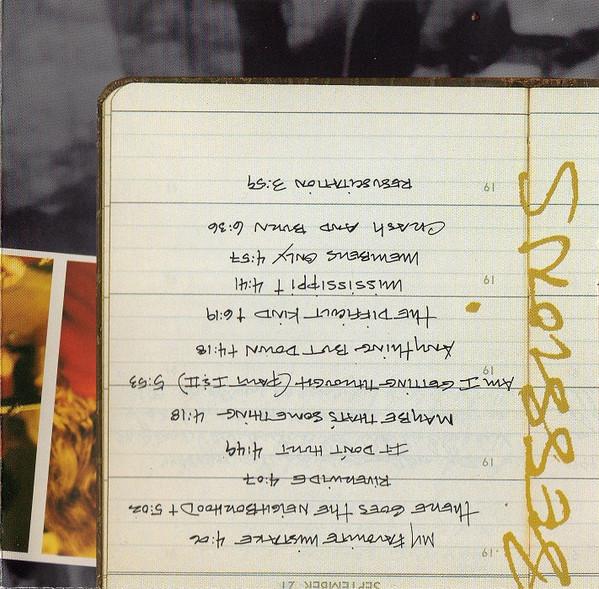 SEPTEMBER 21
19
MY FAVORITE MISTAKE 4:08
THERE GOES THE NEIGHBORHOOD + 5:02
RIVERWIDE 4:07
19
IT DON'T HURT 4:49
MAYBE THAT'S SOMETHING 4:18
AM I GETTING THROUGH (PART I & II) 5:53
19
ANYTHING BUT DOWN +4:18
THE DIFFICULT KIND + 6:19
MISSISSIPPI + 4:41
19
MEMBERS ONLY 4:57
CRASH AND BURN 6:36
19
RESUSCITATION 3:59
SESSIONS